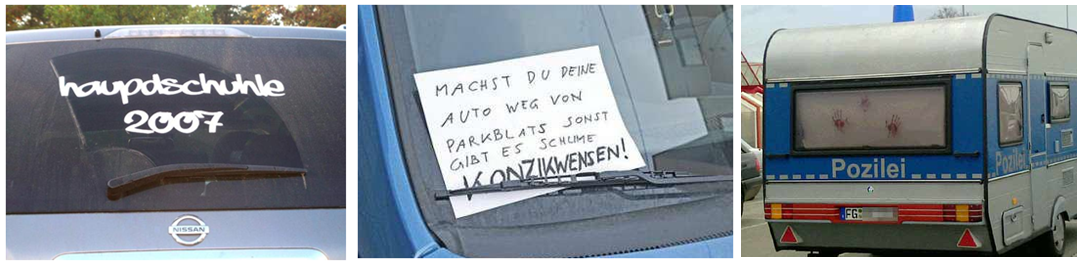 haupdschuhle
2007
NISSAN
MACHST DU DEINE
AUTO WEG VON
PARKBLATS SONST
GIBT ES SCHLIME
KONZIKWENSEN!
Pozilei
Pozilei
FG